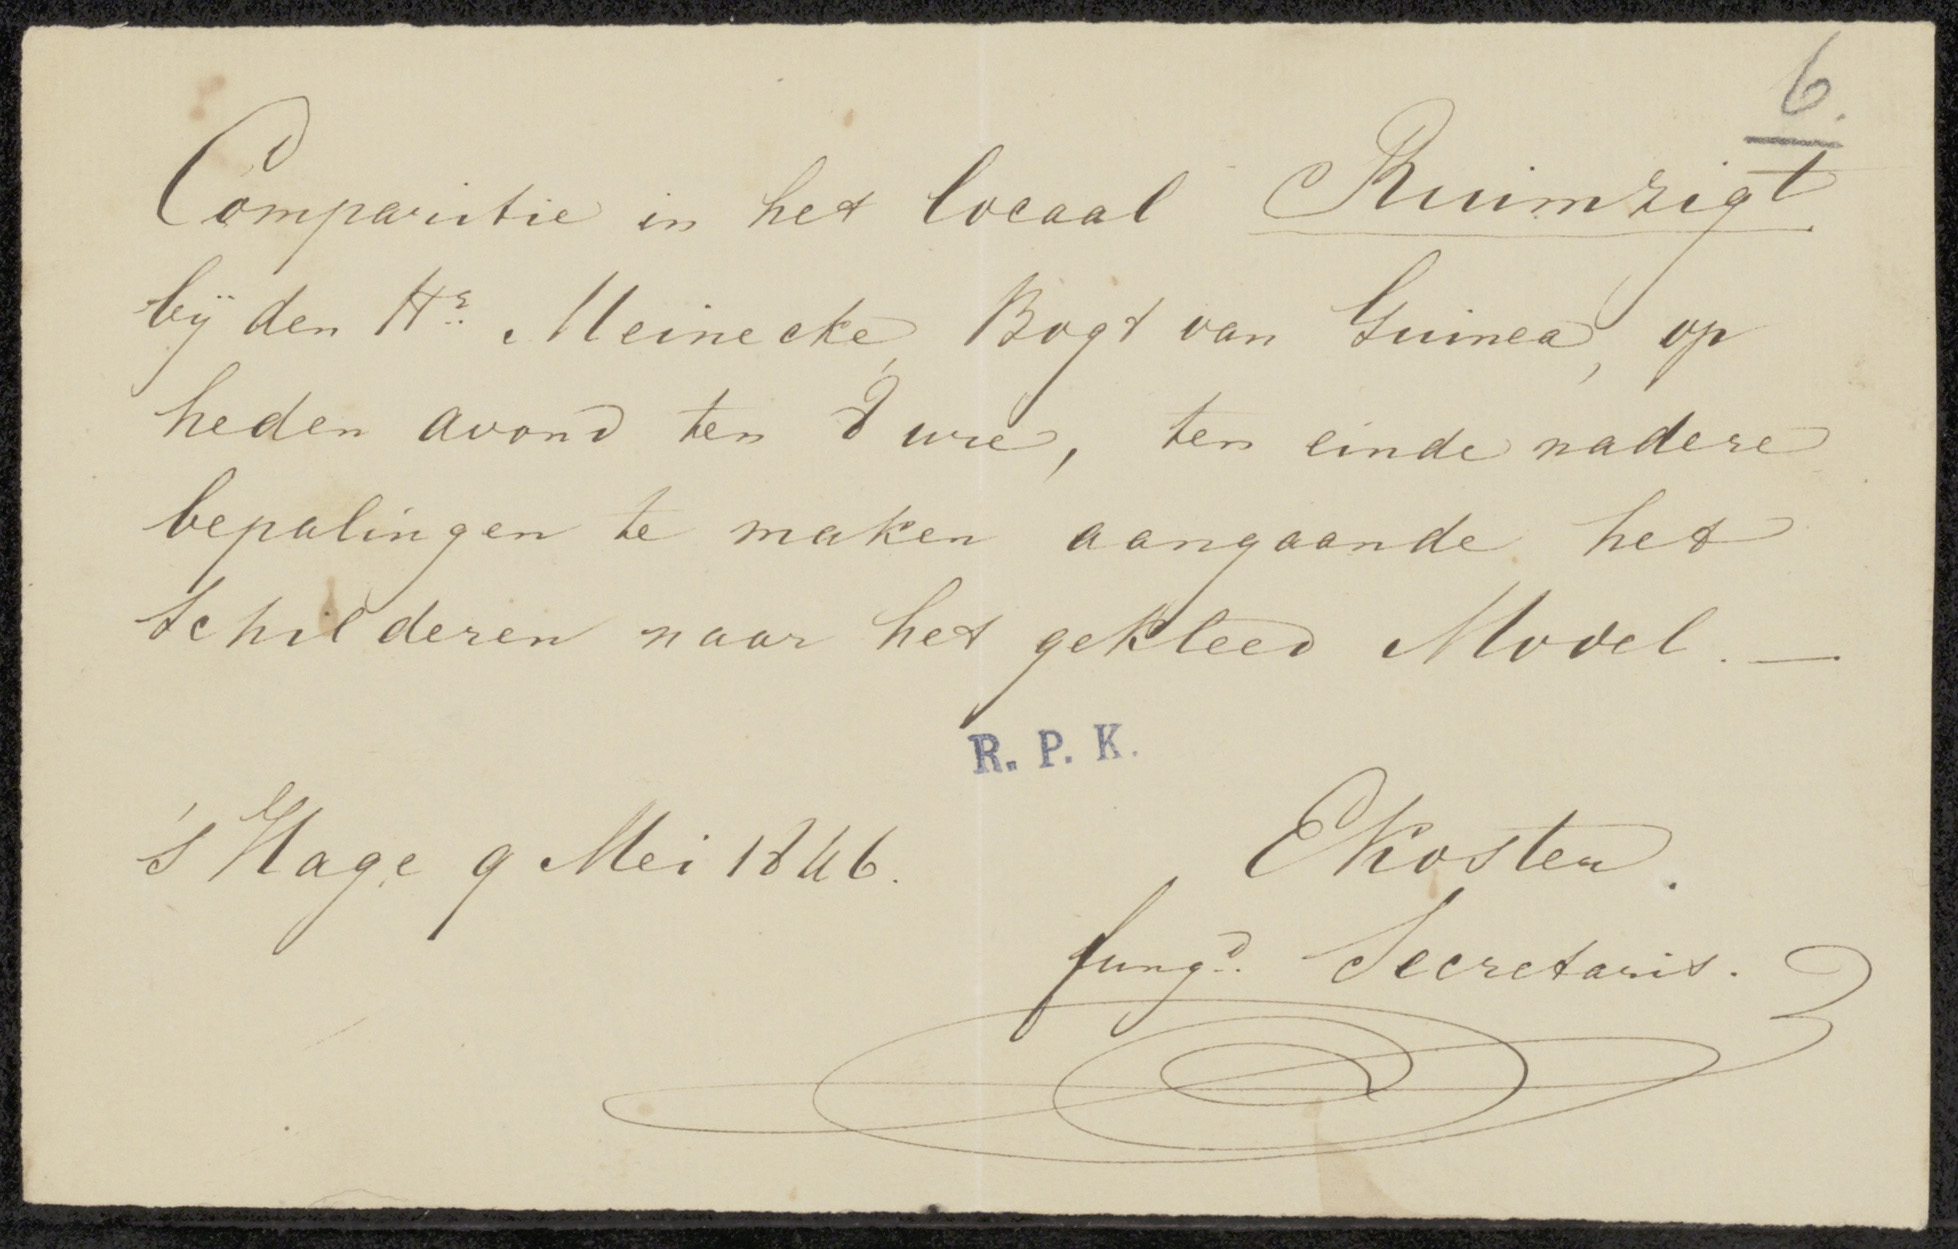 6.
Comparitie in het locaal Ruimzigt
bij den Hr. Meinecke, Bogt van Guinea, op
heden avond ten 8 ure, ten einde nadere
bepalingen te maken aangaande het
schilderen naar het gekleed Model. —
R. P. K.
's Hage 9 Mei 1846.
EKoster.
fungd. Secretaris.